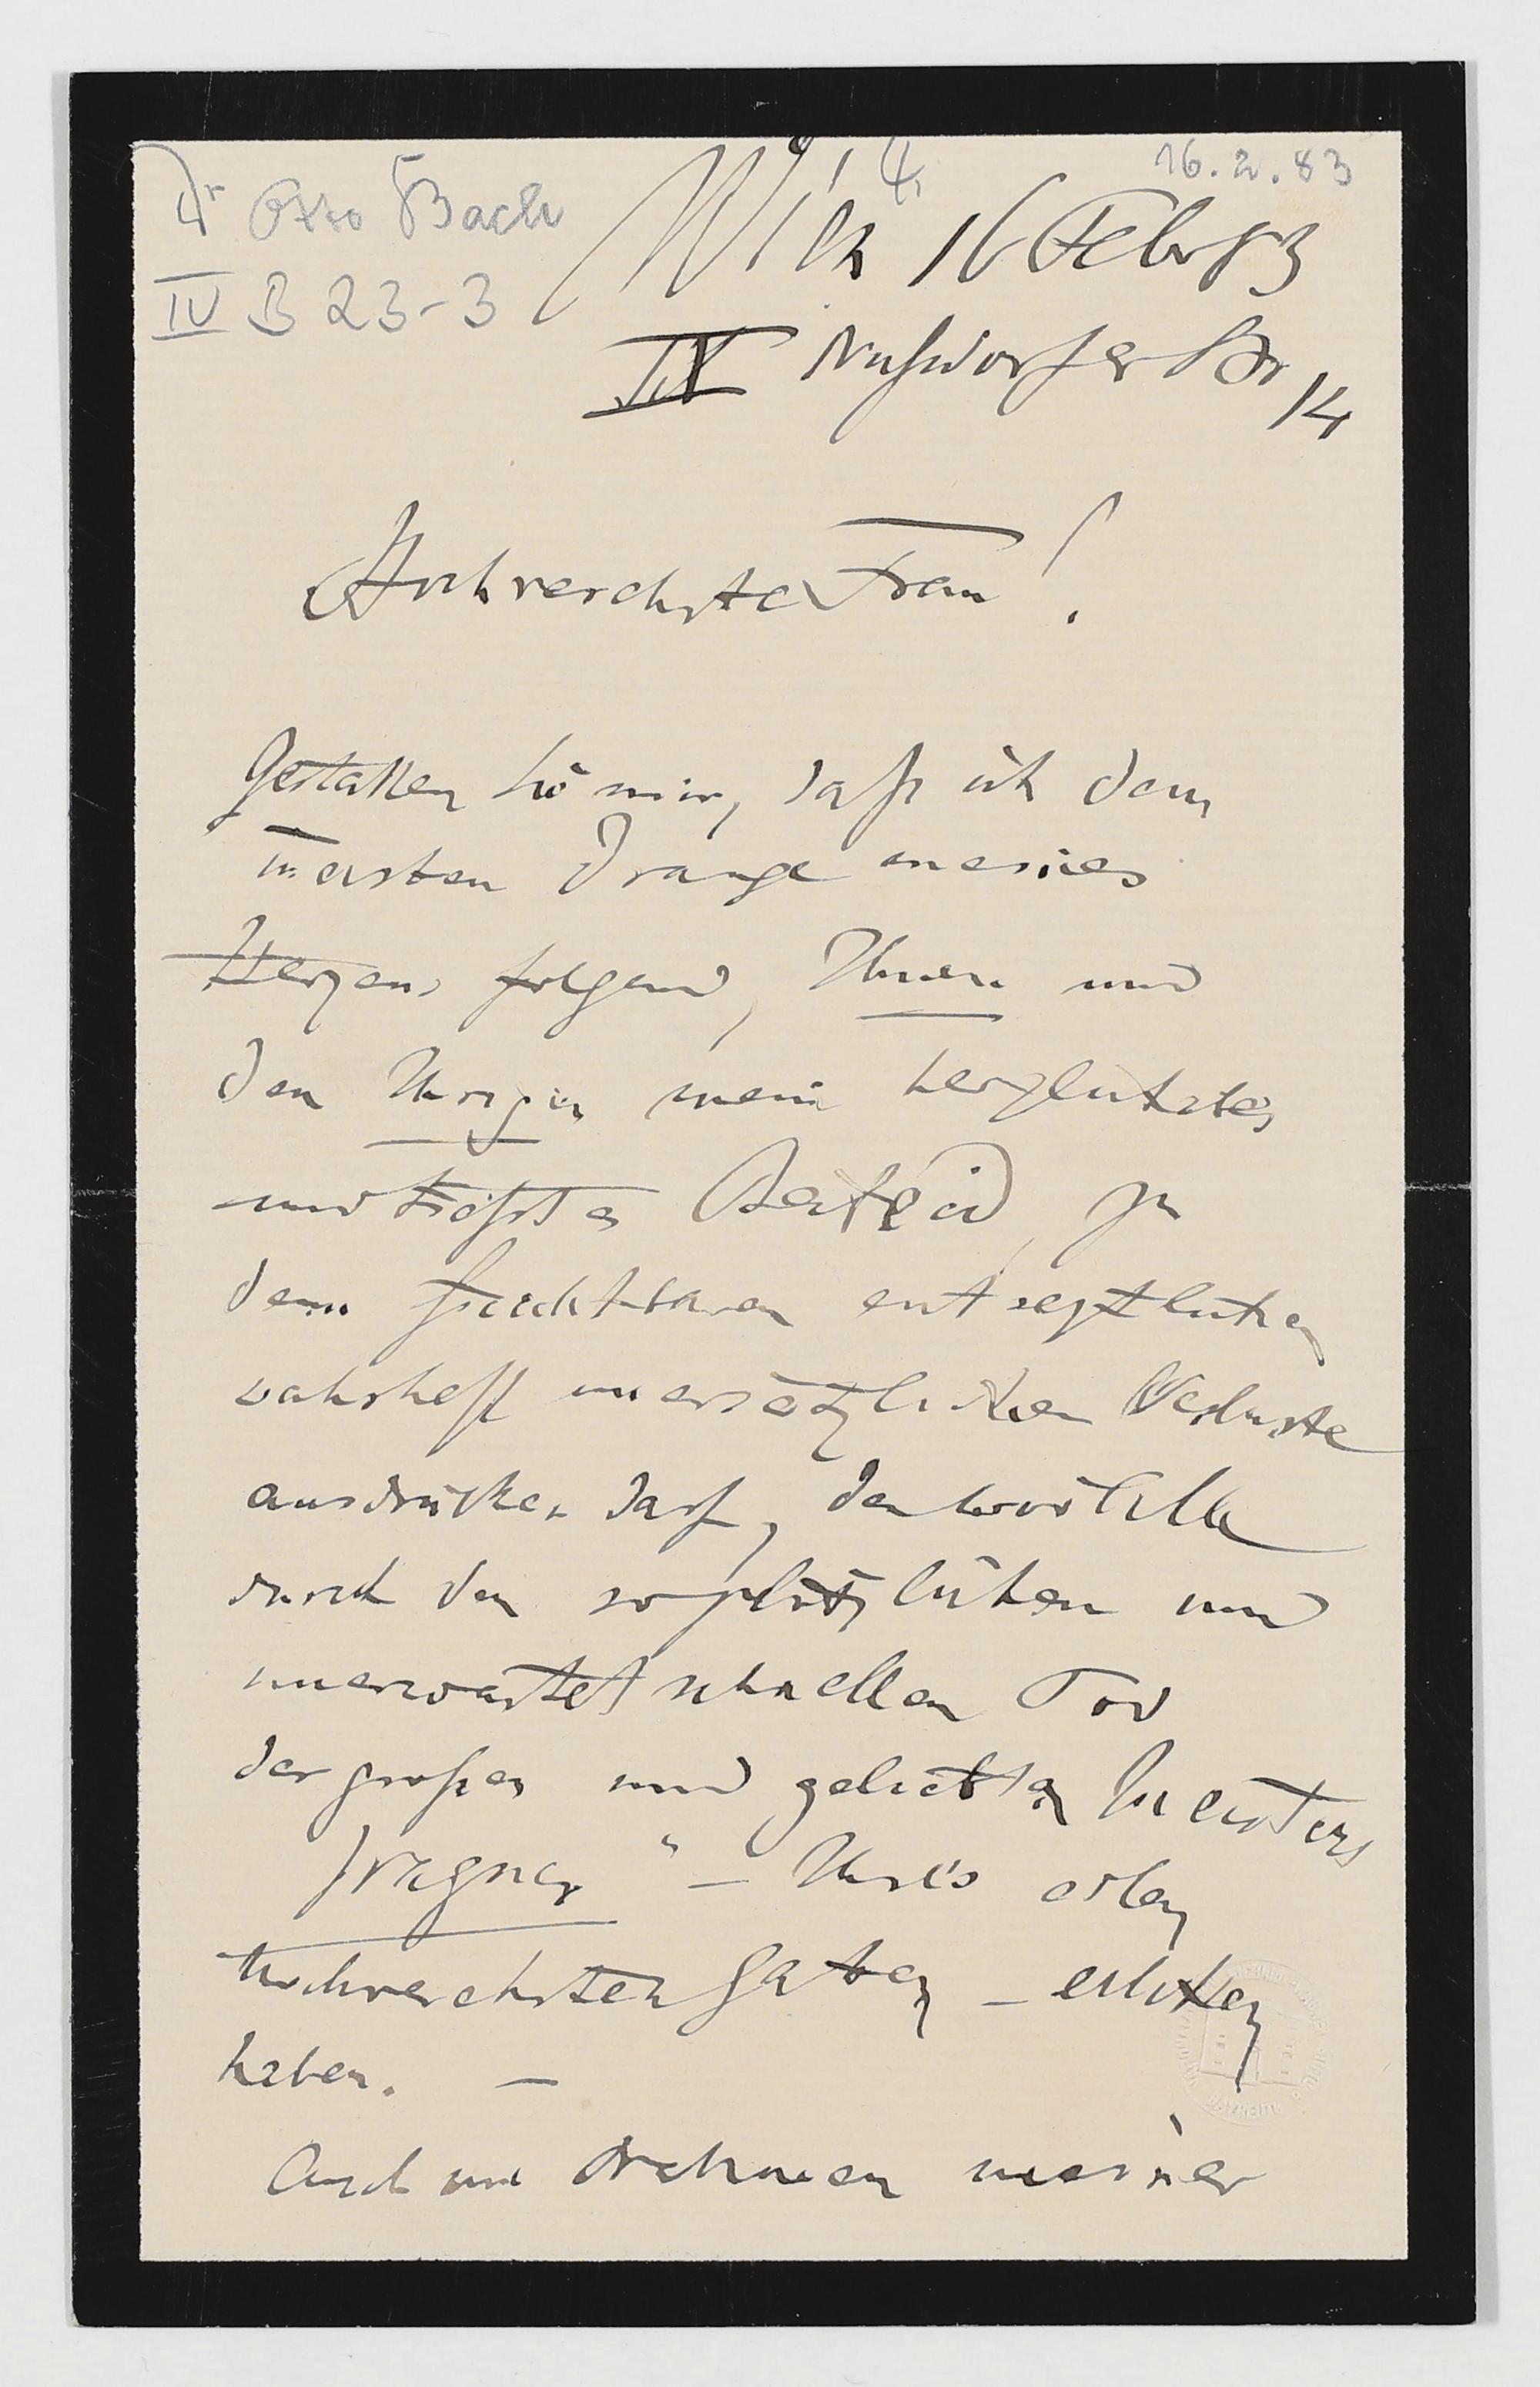 Dr Otto Bach
IV B 23-3
16.2.83
Wien 16 Febr 83
IX Nußdorfer Str
14
Hochverehrte Frau!
Gestatten Sie mir, daß ich dem
innersten Drange meines
Herzens folgend, Ihnen und
den Ihrigen mein herzlichstes
und tiefstes Beileid, zu
dem furchtbaren entsetzlichen
wahrhaft unersetzlichen Verluste
ausdrücken darf, den wir Alle
durch den so plötzlichen und
unerwartet schnellen Tod
des großen und geliebten Meisters
Wagner" – Ihres edlen
hochverehrten Gatten – erlitten
haben. –
Auch im Namen meiner